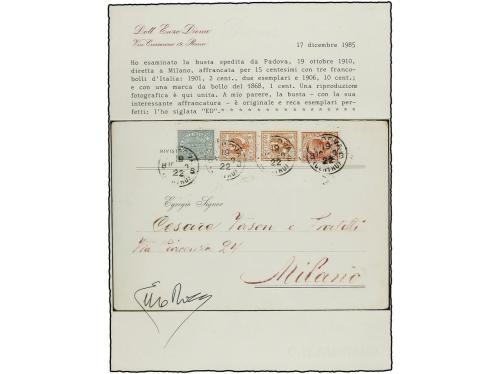 Dott. Enzo Diena
Via Crescenzio 19, Roma
17 dicembre 1985
Ho esaminato la busta spedita da Padova, 19 ottobre 1910,
diretta a Milano, affrancata per 15 centesimi con tre franco-
bolli d'Italia: 1901, 2 cent., due esemplari e 1906, 10 cent.;
e con una marca da bollo del 1868, 1 cent. Una riproduzione
fotografica è qui unita. A mio parere, la busta - con la sua
interessante affrancatura - è originale e reca esemplari per-
fetti: l'ho siglata "ED". * * * * * * * * * * * * * * * * * *
RIVIS
Egregio Signor
Cesare Vason e Fratelli
Via 24
Milano